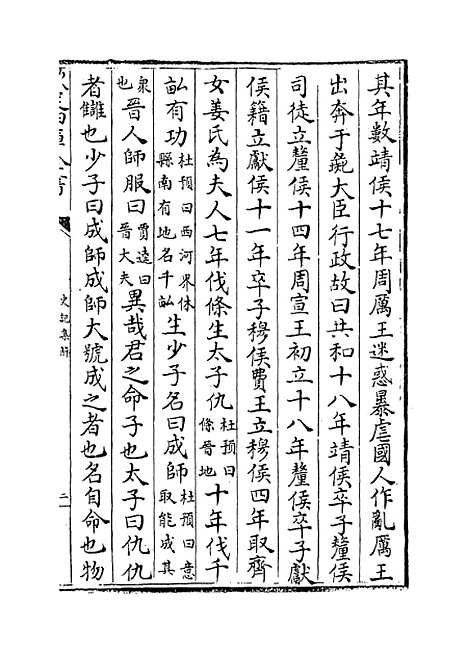 其年數靖侯十七年周厲王迷惑暴虐國人作亂厲王
出奔于彘大臣行政故曰共和十八年靖侯卒子釐侯
司徒立釐侯十四年周宣王初立十八年釐侯卒子獻
侯籍立獻侯十一年卒子穆侯費王立穆侯四年取齊
女姜氏為夫人七年伐條生太子仇杜預曰條晉地十年伐千
畝有功杜預曰西河界休縣南有地名千畝生少子名曰成師杜預曰意取能成其
衆也晉人師服曰賈逵曰晉大夫異哉君之命子也太子曰仇仇
者讎也少子曰成師成師大號成之者也名自命也物
史記集解
二